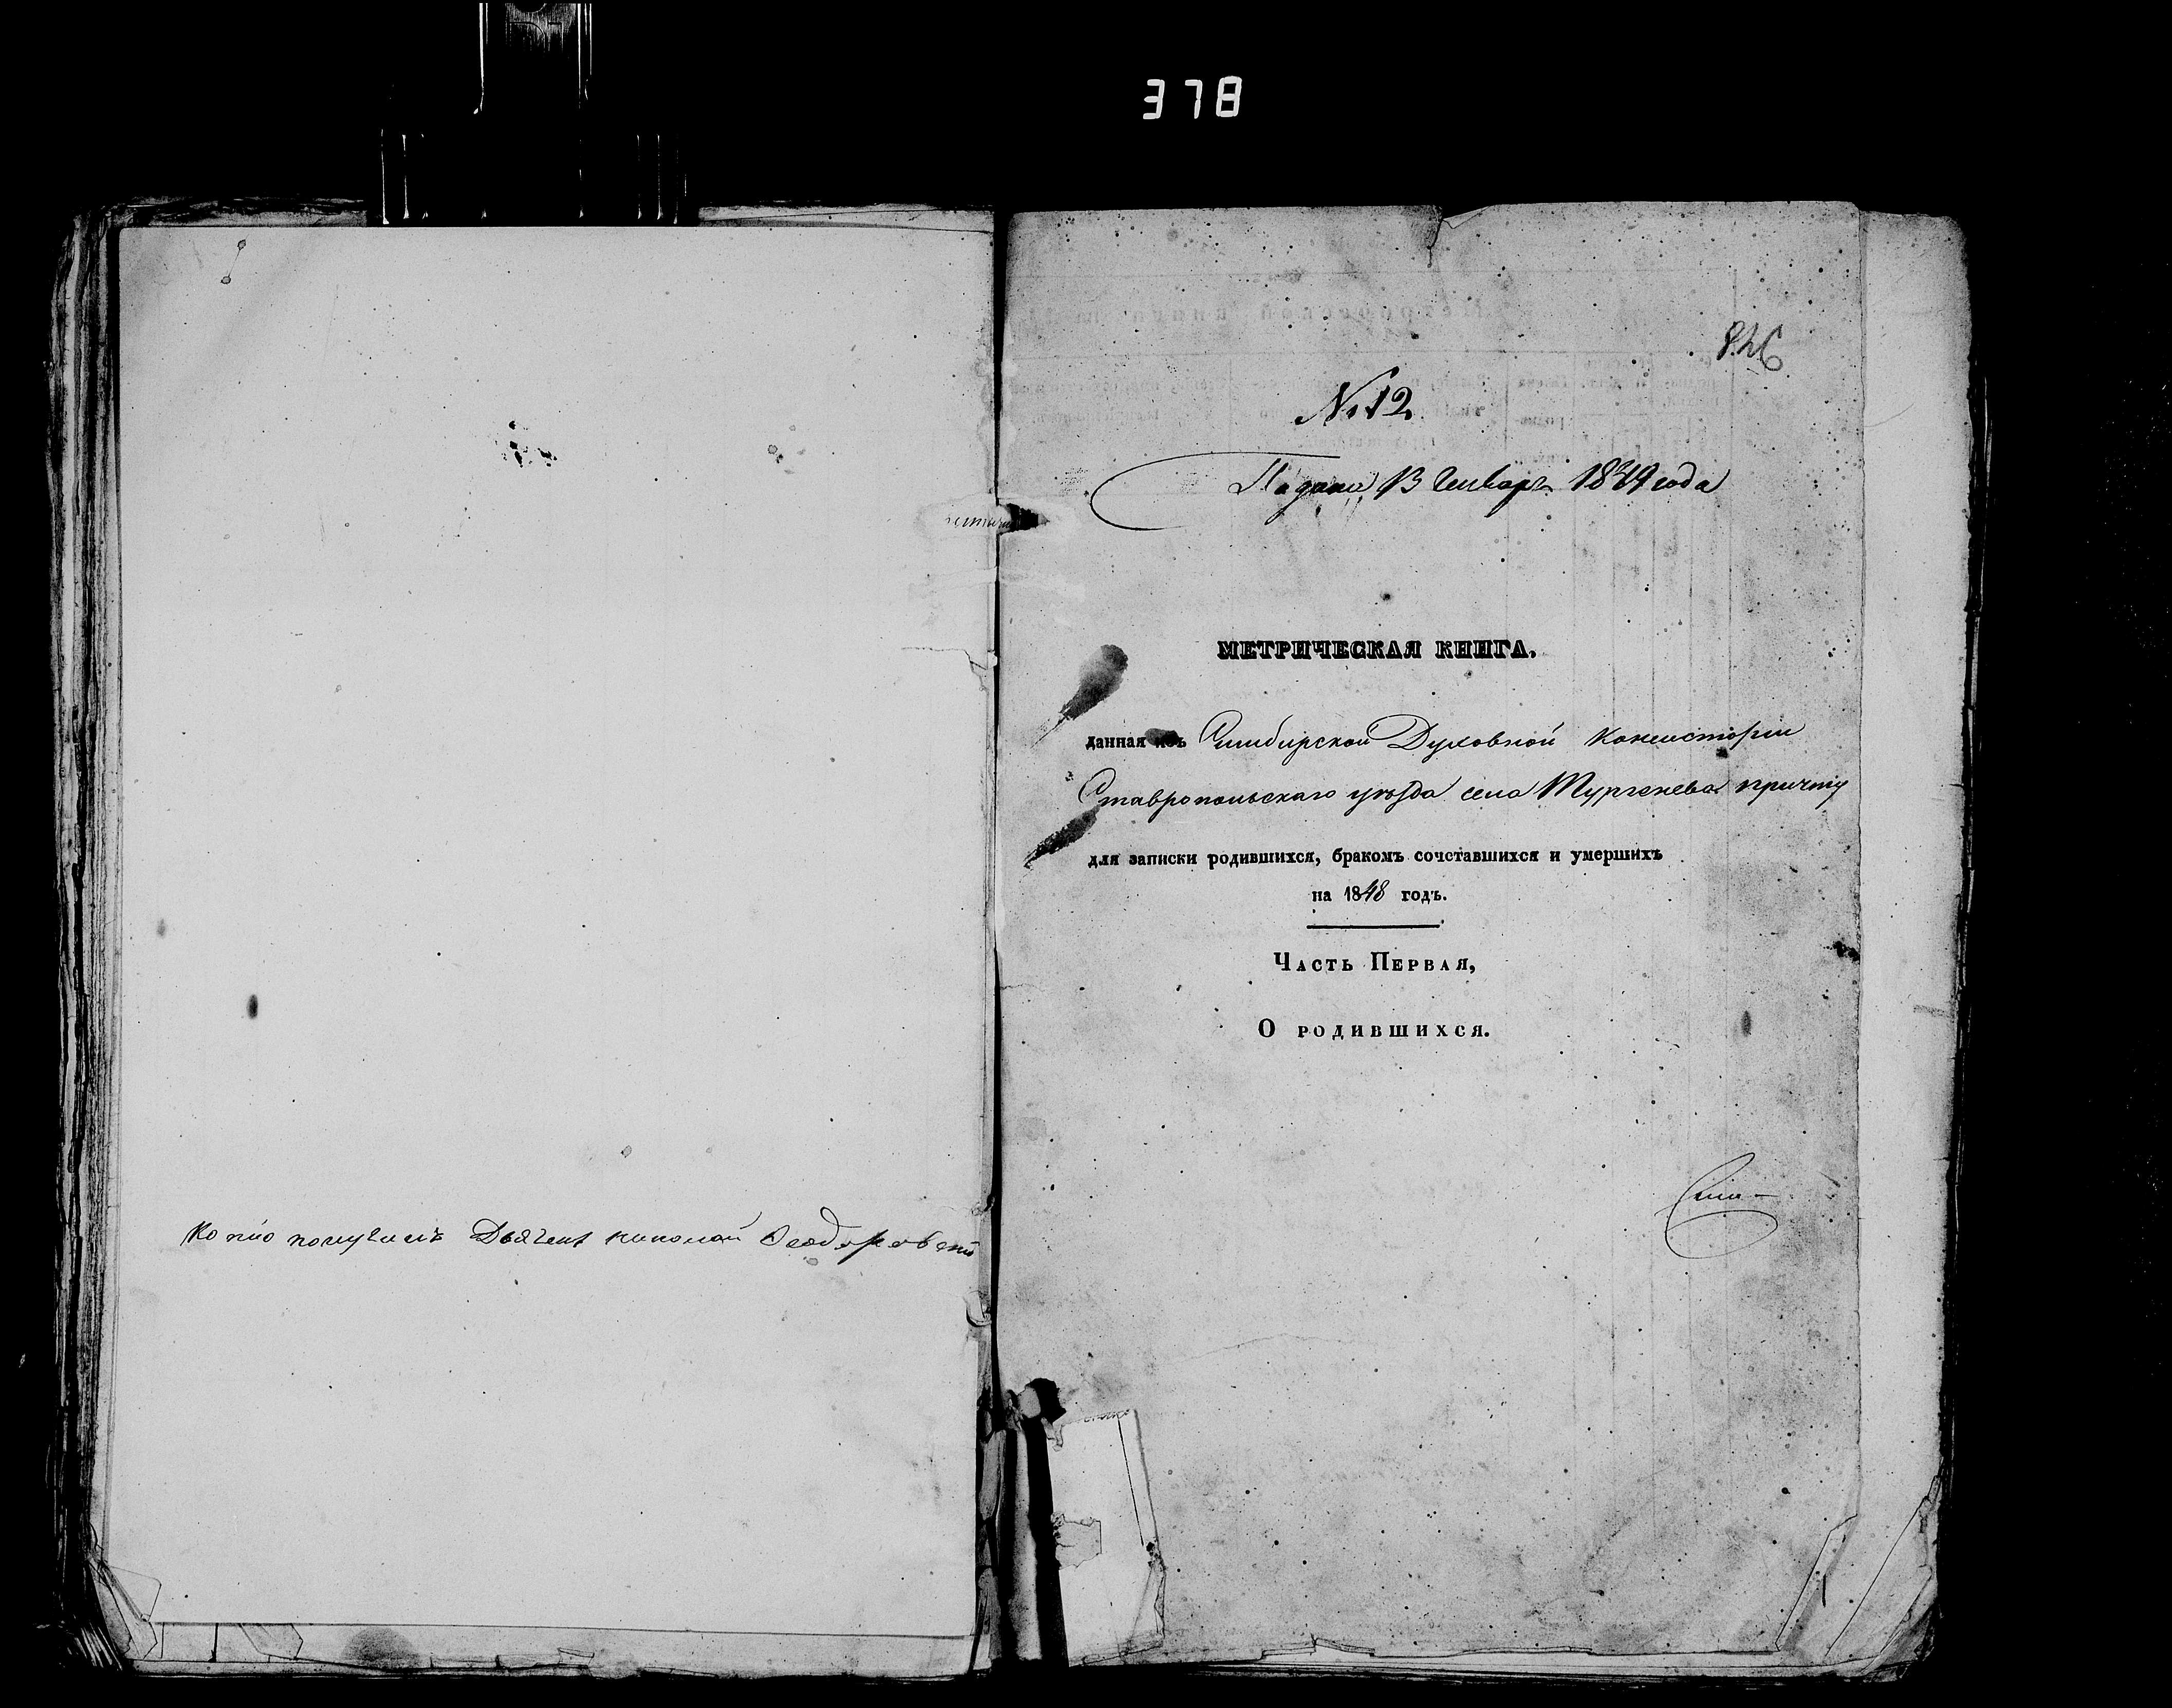 378
Копію получилъ Дьячекъ Николай Ѳеодоровскій
826
№ 12
Подана 13 Генваря 1849 года
МЕТРИЧЕСКАЯ КНИГА,
данная изъ Симбирской Духовной Консисторіи
Ставропольскаго уѣзда села Тургенева причту
для записки родившихся, бракомъ сочетавшихся и умершихъ
на 1848 годъ.
Часть Первая,
О родившихся.